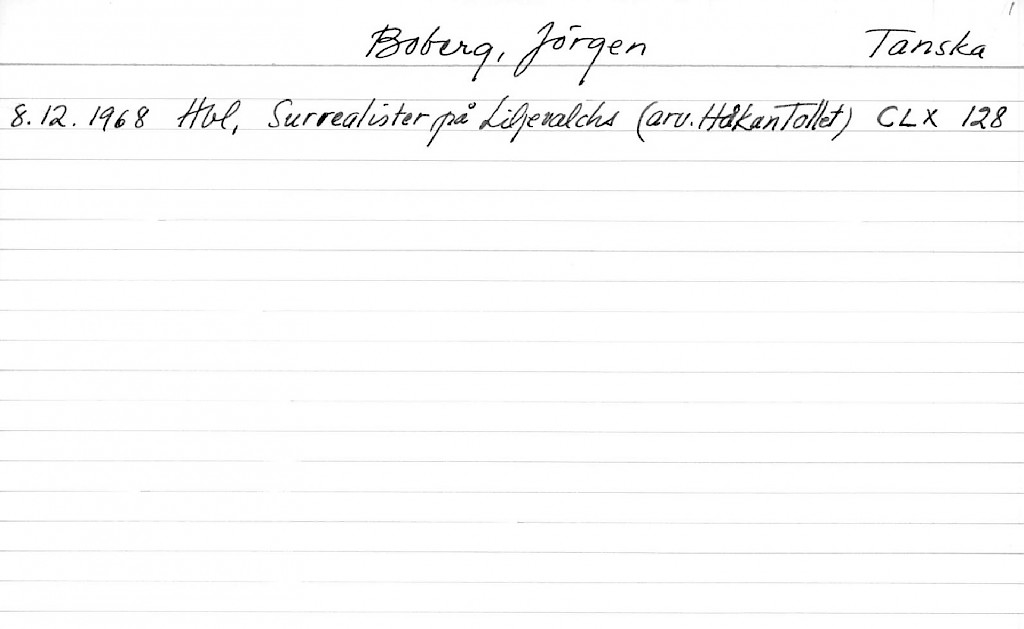 1
Boberg, Jörgen Tanska
8.12.1968 Hbl, Surrealister på Liljevalchs (arv. Håkan Tollet) CLX 128